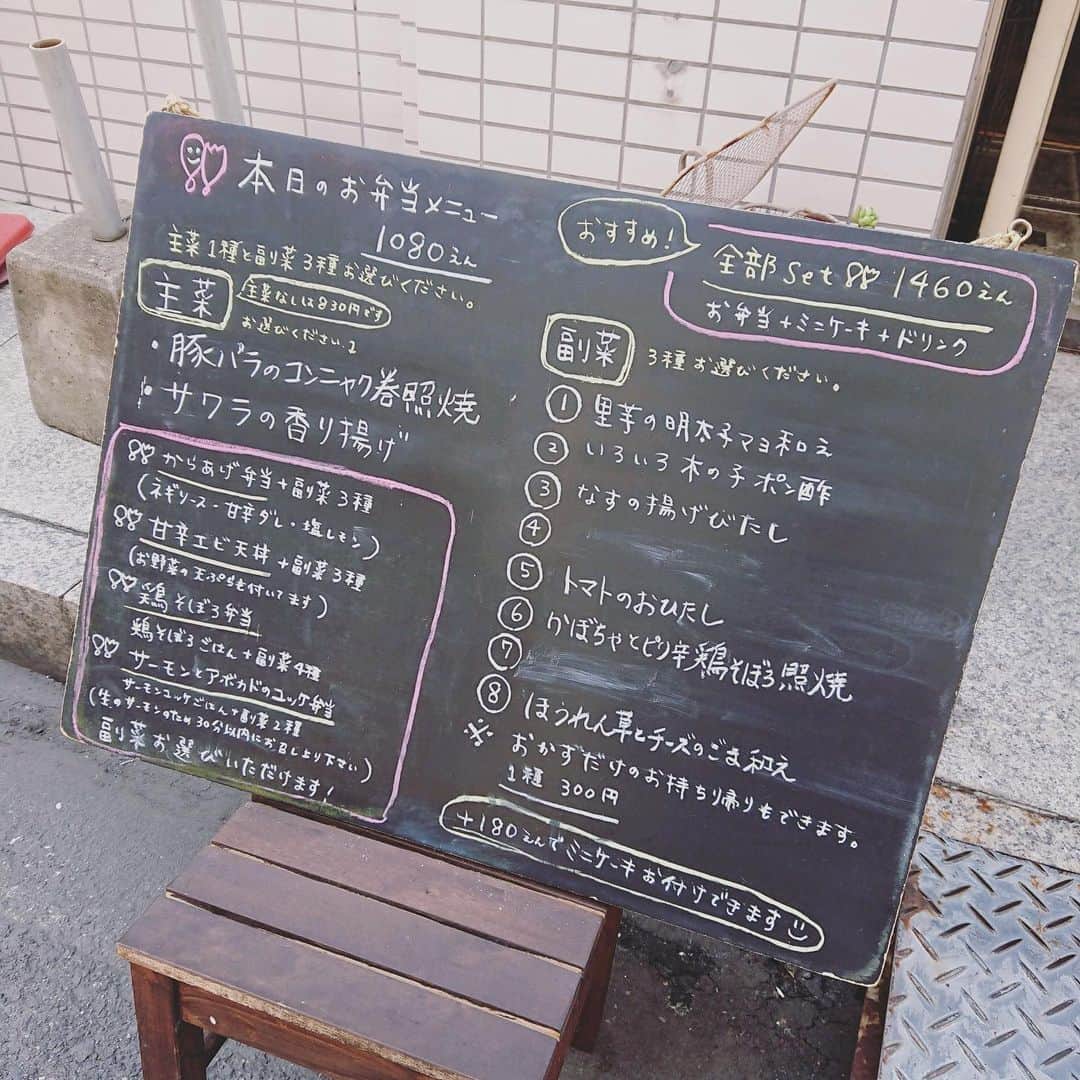 本日のお弁当メニュー
1080えん
主菜1種と副菜3種お選びください。
主菜
主菜なしは830円です
お選びください
・豚バラのコンニャク巻照焼
・サワラの香り揚げ
からあげ弁当+副菜3種
(ネギソース・甘辛ダレ・塩レモン)
甘辛エビ天丼+副菜3種
(お野菜の天ぷらも付いてます)
鶏そぼろ弁当
鶏そぼろごはん+副菜4種
サーモンとアボカドのユッケ弁当
サーモンユッケごはん+副菜2種
(生のサーモンのため30分以内にお召し上り下さい)
副菜お選びいただけます!
おすすめ!
全部set 1460えん
お弁当+ミニケーキ+ドリンク
副菜
3種お選びください。
① 里芋の明太子マヨ和え
② いろいろ木の子ポン酢
③ なすの揚げびたし
④
⑤ トマトのおひたし
⑥ かぼちゃとピリ辛鶏そぼろ照焼
⑦
⑧ ほうれん草とチーズのごま和え
※ おかずだけのお持ち帰りもできます。
1種 300円
+180えんでミニケーキお付けできます